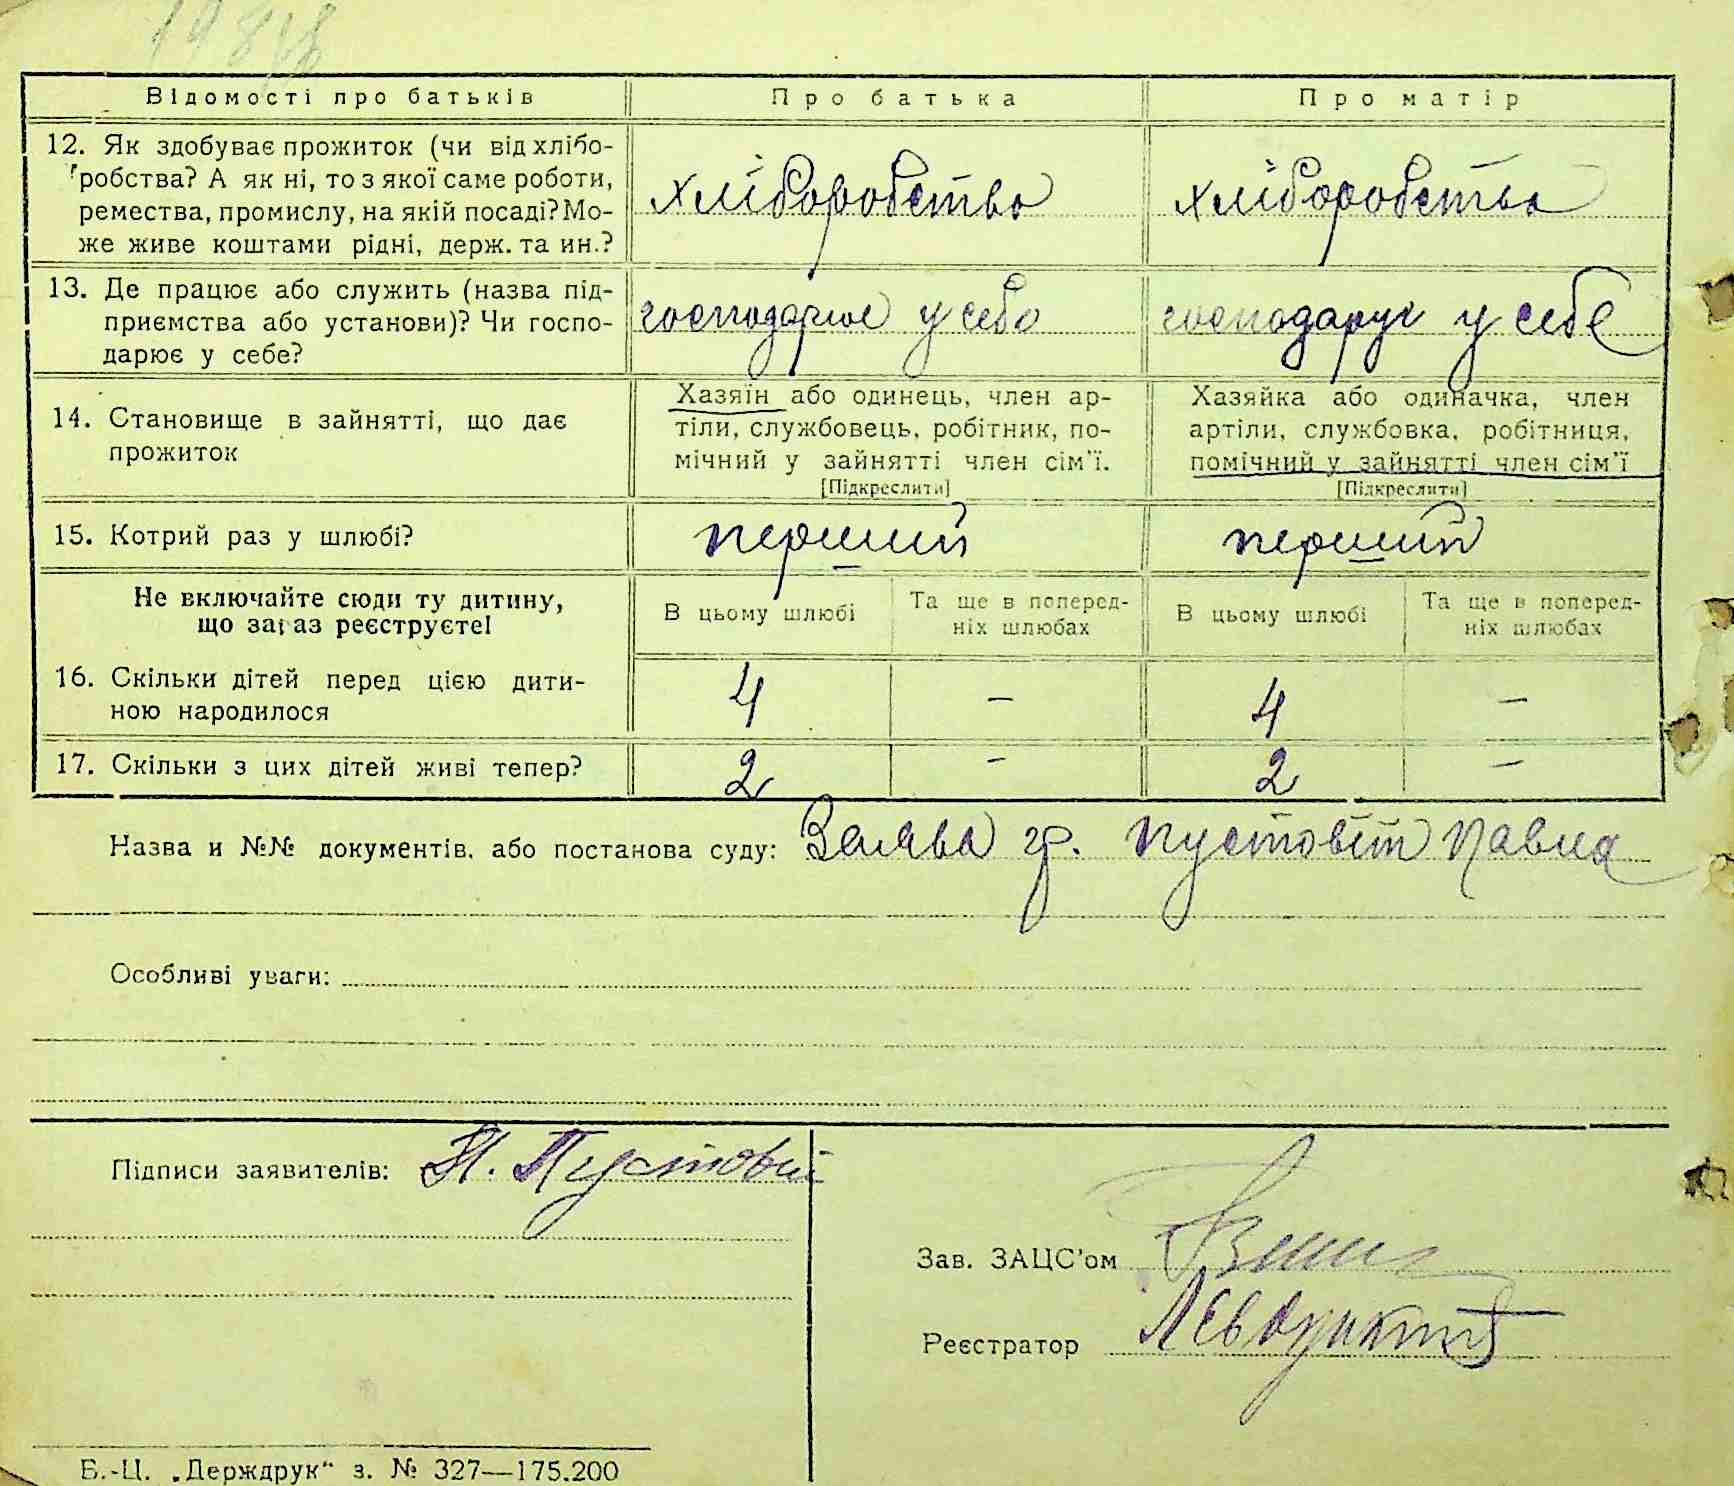 Відомості про батьків
Про батька
Про матір
12. Як здобуває прожиток (чи від хлібо-
робства? А як ні, то з якої саме роботи,
ремества, промислу, на якій посаді? Мо-
же живе коштами рідні, держ. та ин.?
хліборобство
хліборобство
13. Де працює або служить (назва під-
приємства або установи)? Чи госпо-
дарює у себе?
господарює у себе
господарує у себе
14. Становище в зайнятті, що дає
прожиток
Хазяїн або одинець, член ар-
тіли, службовець, робітник, по-
мічний у зайнятті член сім'ї.
[Підкреслити]
Хазяйка або одиначка, член
артіли, службовка, робітниця,
помічний у зайнятті член сім'ї
[Підкреслити]
15. Котрий раз у шлюбі?
перший
перший
Не включайте сюди ту дитину,
що зараз реєструєте!
В цьому шлюбі
Та ще в поперед-
ніх шлюбах
В цьому шлюбі
Та ще в поперед-
ніх шлюбах
16. Скільки дітей перед цією дити-
ною народилося
4 – 4 –
17. Скільки з цих дітей живі тепер?
2 – 2 –
Назва и №№ документів. або постанова суду: Заява гр. Пустовіт Павла
Особливі уваги:
Підписи заявителів: П. Пустовіт
Зав. ЗАЦС'ом
Реєстратор
Б.-Ц. „Держдрук“ з. № 327—175.200